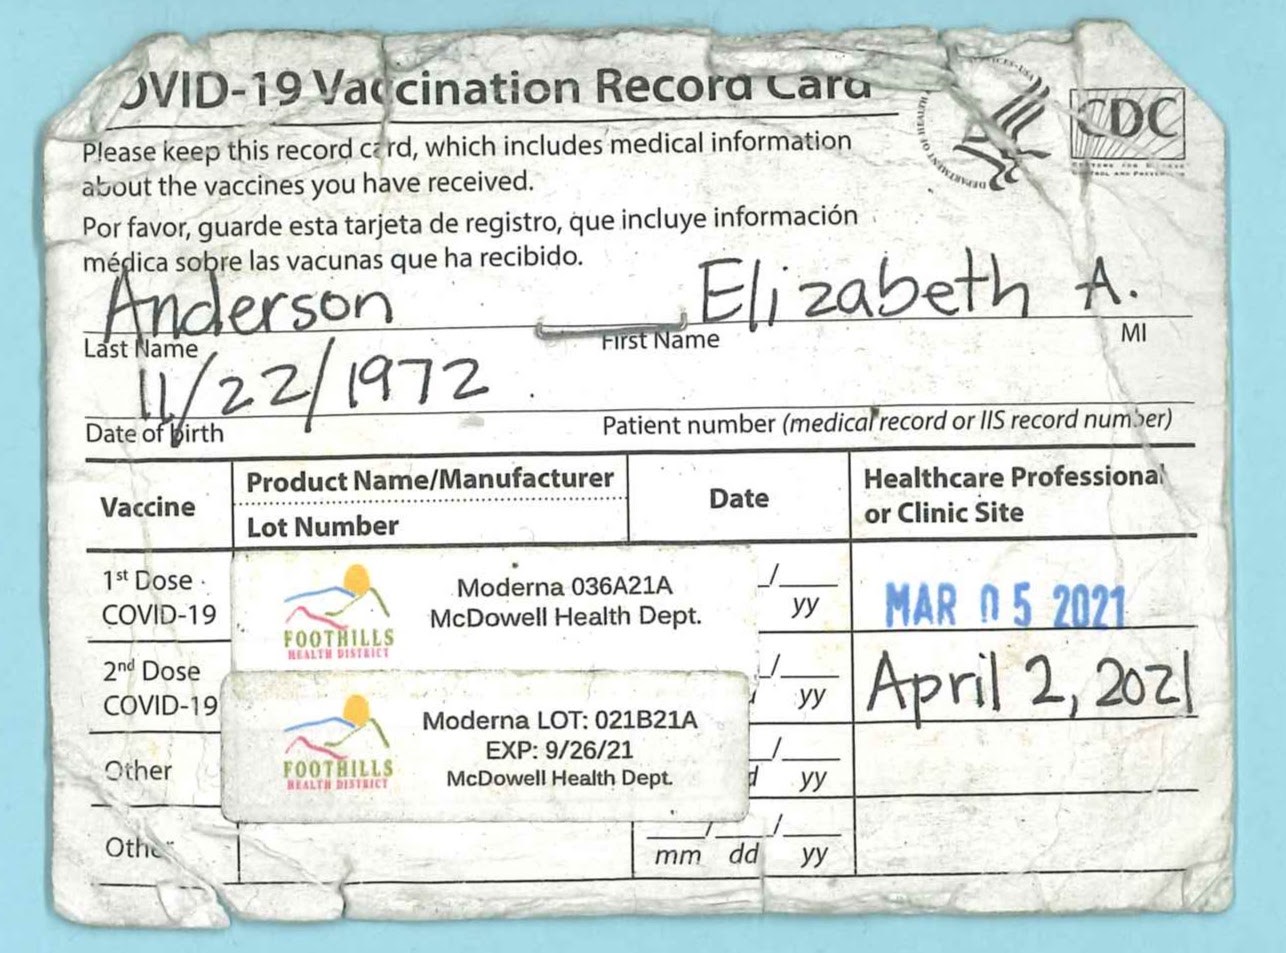 OVID-19 Vaccination Record Card
Please keep this record card, which includes medical information
about the vaccines you have received.
Por favor, guarde esta tarjeta de registro, que incluye información
médica sobre las vacunas que ha recibido.
CDC
Anderson Elizabeth A.
Last Name First Name MI
11/22/1972
Date of birth Patient number (medical record or IIS record number)
Vaccine
Product Name/Manufacturer
Lot Number
Date
Healthcare Professional
or Clinic Site
1st Dose
COVID-19
FOOTHILLS
HEALTH DISTRICT
Moderna 036A21A
McDowell Health Dept.
/
yy
MAR 05 2021
2nd Dose
COVID-19
/
yy
April 2, 2021
FOOTHILLS
HEALTH DISTRICT
Moderna LOT: 021B21A
EXP: 9/26/21
McDowell Health Dept.
Other
/
yy
Other
/ /
mm dd yy